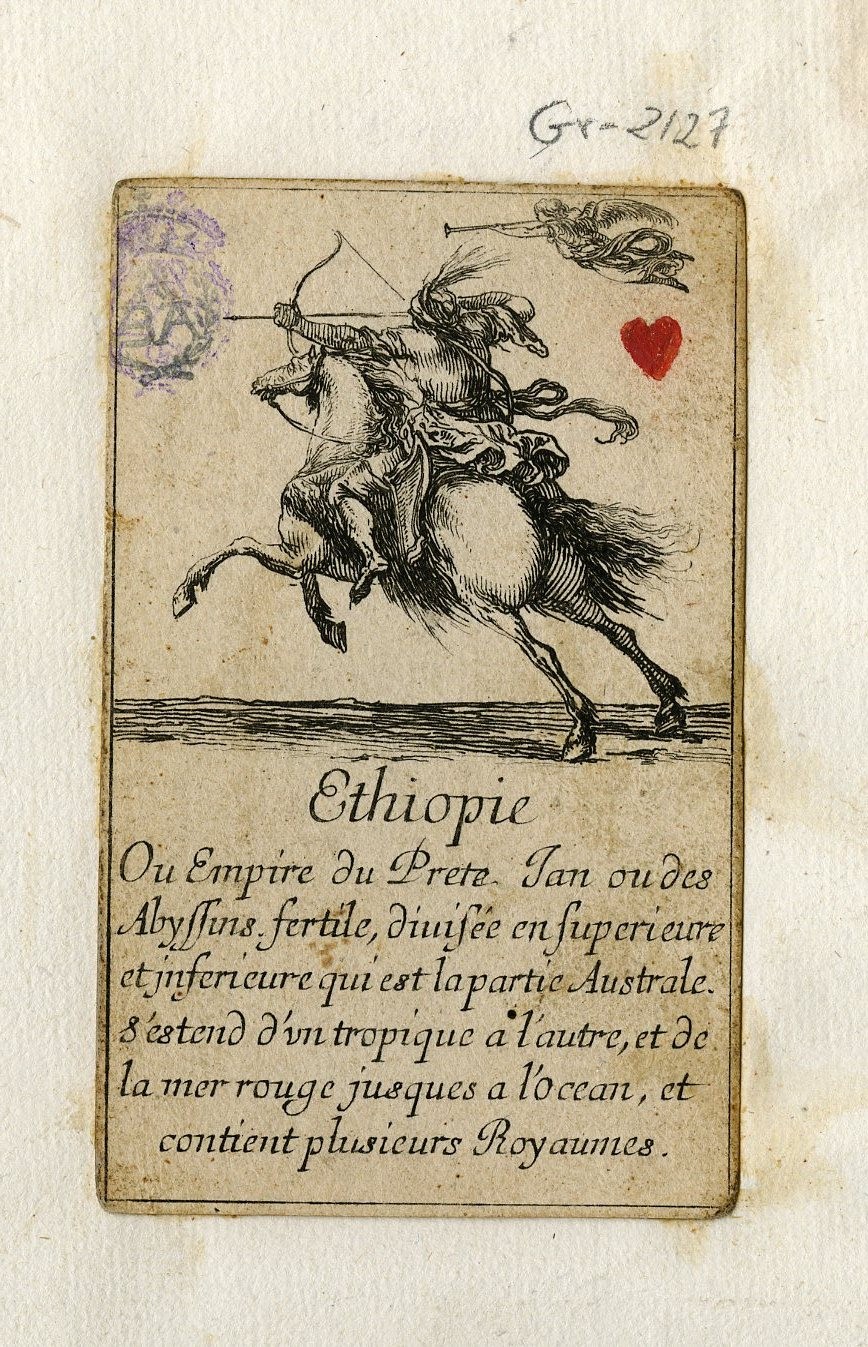 Gr-2127
Ethiopie
Ou Empire du Prete Ian ou des
Abyſſins. fertile, diuiſée en ſuperieure
et jnferieure qui est la partie Australe.
s'estend d'vn tropique a l'autre, et de
la mer rouge jusques a l'Ocean, et
contient plusieurs Royaumes.